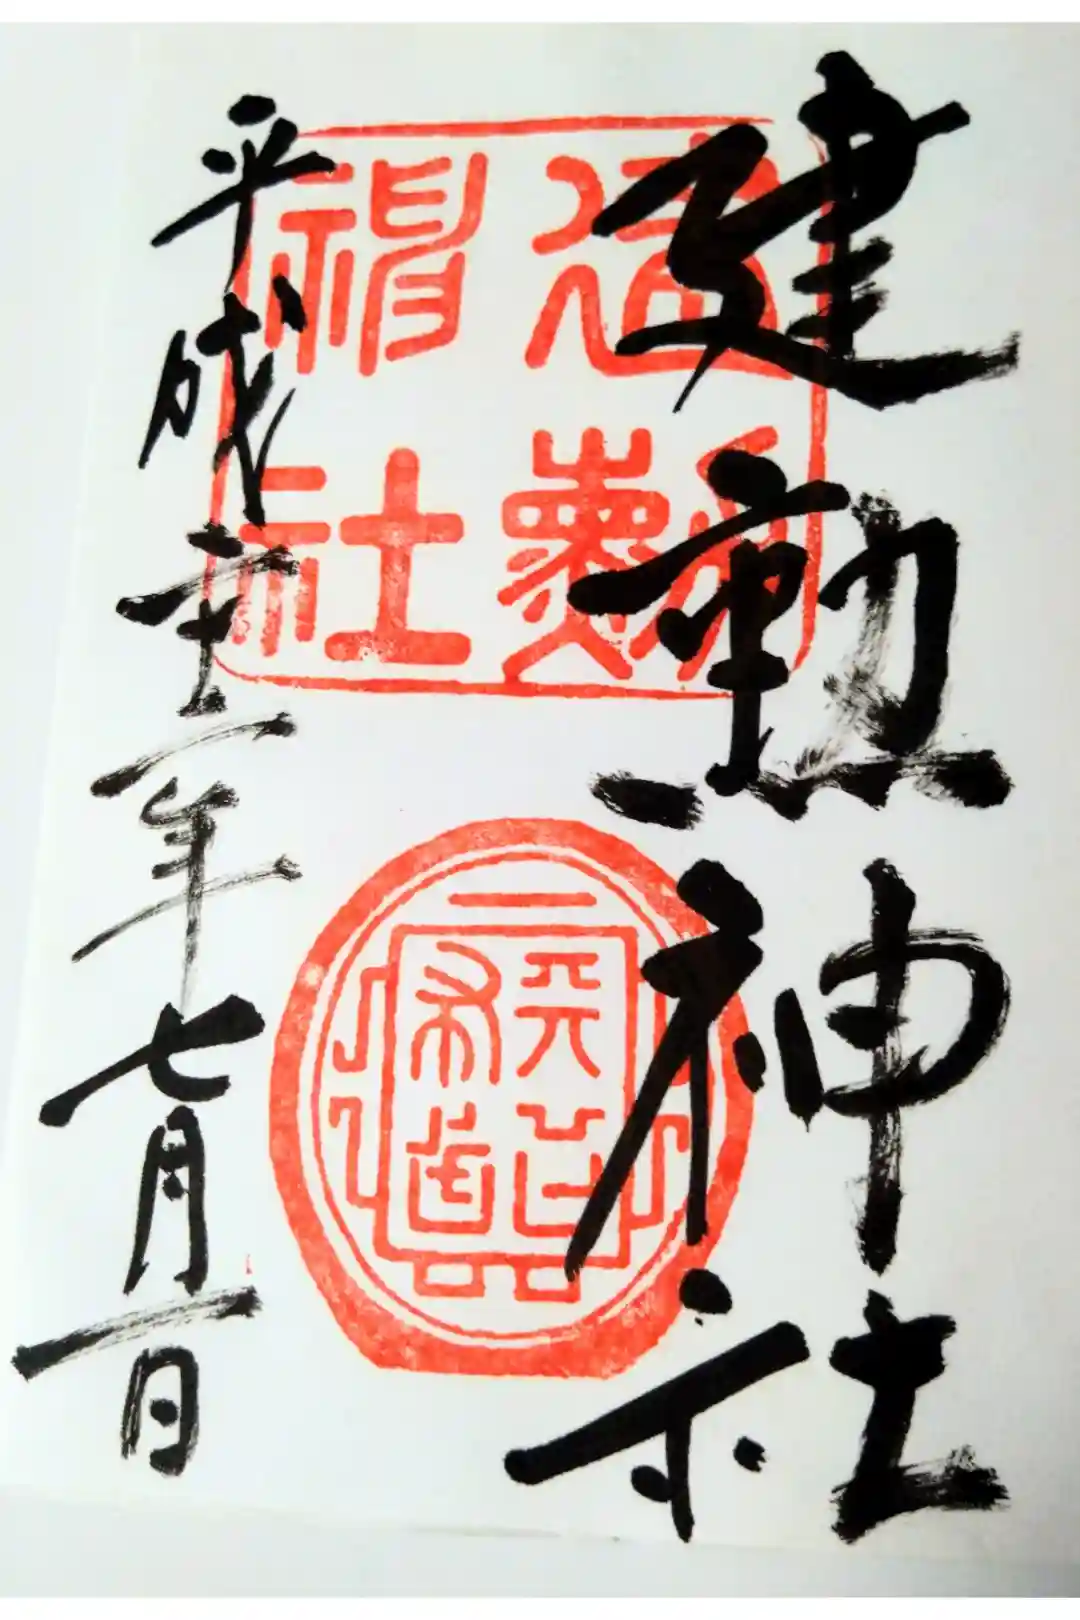 建勲神社
平成二十二年七月一日
建勲神社
天下布武